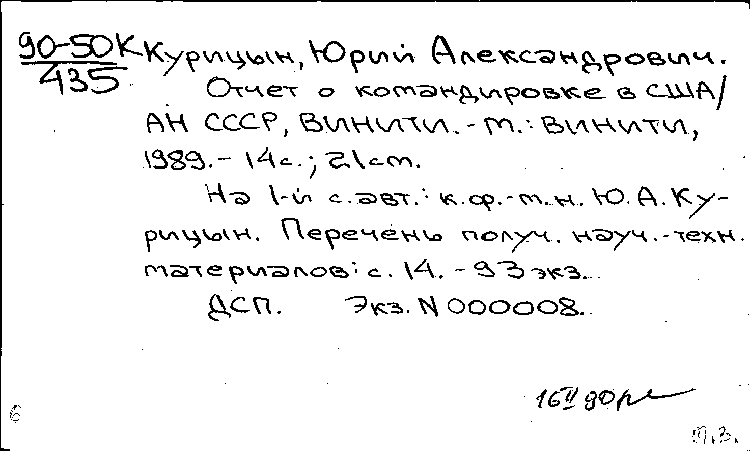 90-50К Курицын, Юрий Александрович.
435
Отчет о командировке в США/
АН СССР, ВИНИТИ. - М.: ВИНИТИ,
1989. - 14с.; 21см.
На 1-й с. авт.: к.ф.-м.н. Ю.А. Ку-
рицын. Перечень получ. науч.-техн.
материалов: с. 14. - 93 экз.
ДСП. Экз. N 000008.
16 II 90
6
м.з.